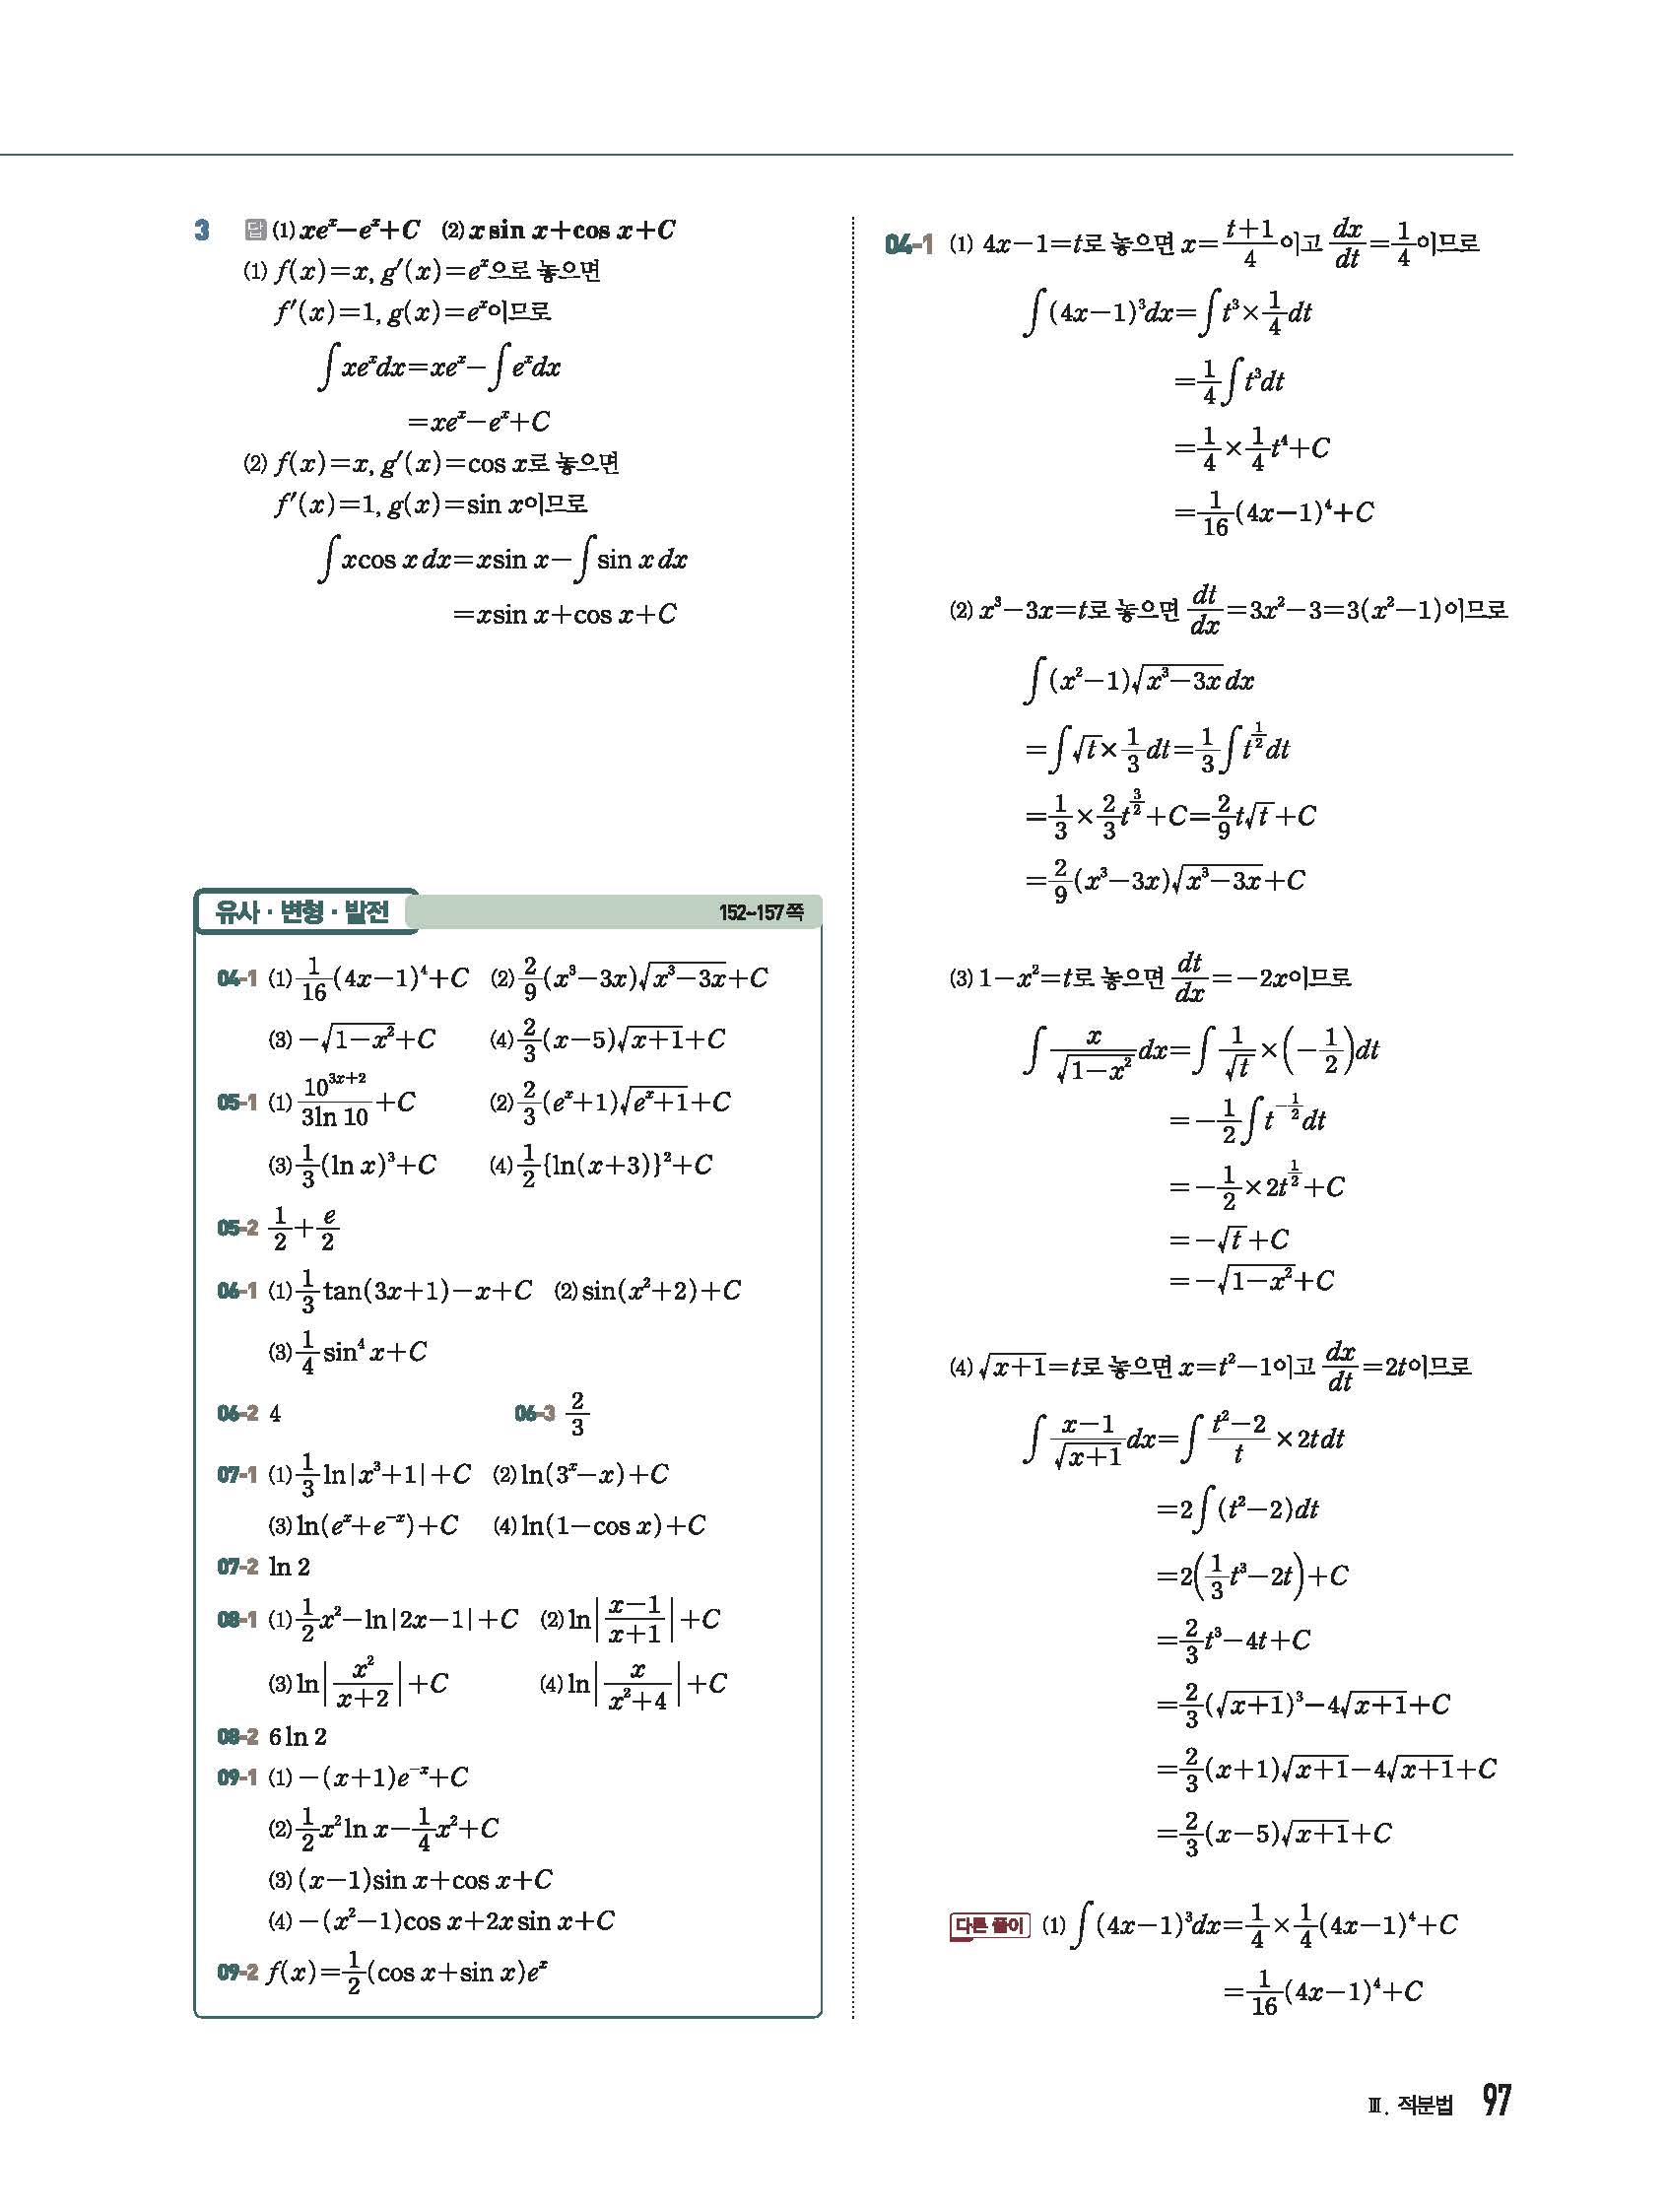 3 답 (1) xeˣ−eˣ+C (2) x sin x+cos x+C
(1) f(x)=x, g′(x)=eˣ으로 놓으면
f′(x)=1, g(x)=eˣ이므로
∫xeˣdx=xeˣ−∫eˣdx
=xeˣ−eˣ+C
(2) f(x)=x, g′(x)=cos x로 놓으면
f′(x)=1, g(x)=sin x이므로
∫xcos x dx=xsin x−∫sin x dx
=xsin x+cos x+C
유사 · 변형 · 발전 152~157쪽
04-1 (1) 1/16(4x−1)⁴+C (2) 2/9(x³−3x)√(x³−3x)+C
(3) −√(1−x²)+C (4) 2/3(x−5)√(x+1)+C
05-1 (1) 10^(3x+2)/(3ln 10)+C (2) 2/3(eˣ+1)√(eˣ+1)+C
(3) 1/3(ln x)³+C (4) 1/2{ln(x+3)}²+C
05-2 1/2+e/2
06-1 (1) 1/3 tan(3x+1)−x+C (2) sin(x²+2)+C
(3) 1/4 sin⁴ x+C
06-2 4 06-3 2/3
07-1 (1) 1/3 ln|x³+1|+C (2) ln(3ˣ−x)+C
(3) ln(eˣ+e⁻ˣ)+C (4) ln(1−cos x)+C
07-2 ln 2
08-1 (1) 1/2x²−ln|2x−1|+C (2) ln|(x−1)/(x+1)|+C
(3) ln|x²/(x+2)|+C (4) ln|x/(x²+4)|+C
08-2 6 ln 2
09-1 (1) −(x+1)e⁻ˣ+C
(2) 1/2x²ln x−1/4x²+C
(3) (x−1)sin x+cos x+C
(4) −(x²−1)cos x+2x sin x+C
09-2 f(x)=1/2(cos x+sin x)eˣ
04-1 (1) 4x−1=t로 놓으면 x=(t+1)/4이고 dx/dt=1/4이므로
∫(4x−1)³dx=∫t³×1/4dt
=1/4∫t³dt
=1/4×1/4t⁴+C
=1/16(4x−1)⁴+C
(2) x³−3x=t로 놓으면 dt/dx=3x²−3=3(x²−1)이므로
∫(x²−1)√(x³−3x)dx
=∫√t×1/3dt=1/3∫t^(1/2)dt
=1/3×2/3t^(3/2)+C=2/9t√t+C
=2/9(x³−3x)√(x³−3x)+C
(3) 1−x²=t로 놓으면 dt/dx=−2x이므로
∫x/√(1−x²)dx=∫1/√t×(−1/2)dt
=−1/2∫t^(−1/2)dt
=−1/2×2t^(1/2)+C
=−√t+C
=−√(1−x²)+C
(4) √(x+1)=t로 놓으면 x=t²−1이고 dx/dt=2t이므로
∫(x−1)/√(x+1)dx=∫(t²−2)/t×2tdt
=2∫(t²−2)dt
=2(1/3t³−2t)+C
=2/3t³−4t+C
=2/3(√(x+1))³−4√(x+1)+C
=2/3(x+1)√(x+1)−4√(x+1)+C
=2/3(x−5)√(x+1)+C
다른 풀이 (1) ∫(4x−1)³dx=1/4×1/4(4x−1)⁴+C
=1/16(4x−1)⁴+C
Ⅲ. 적분법 97